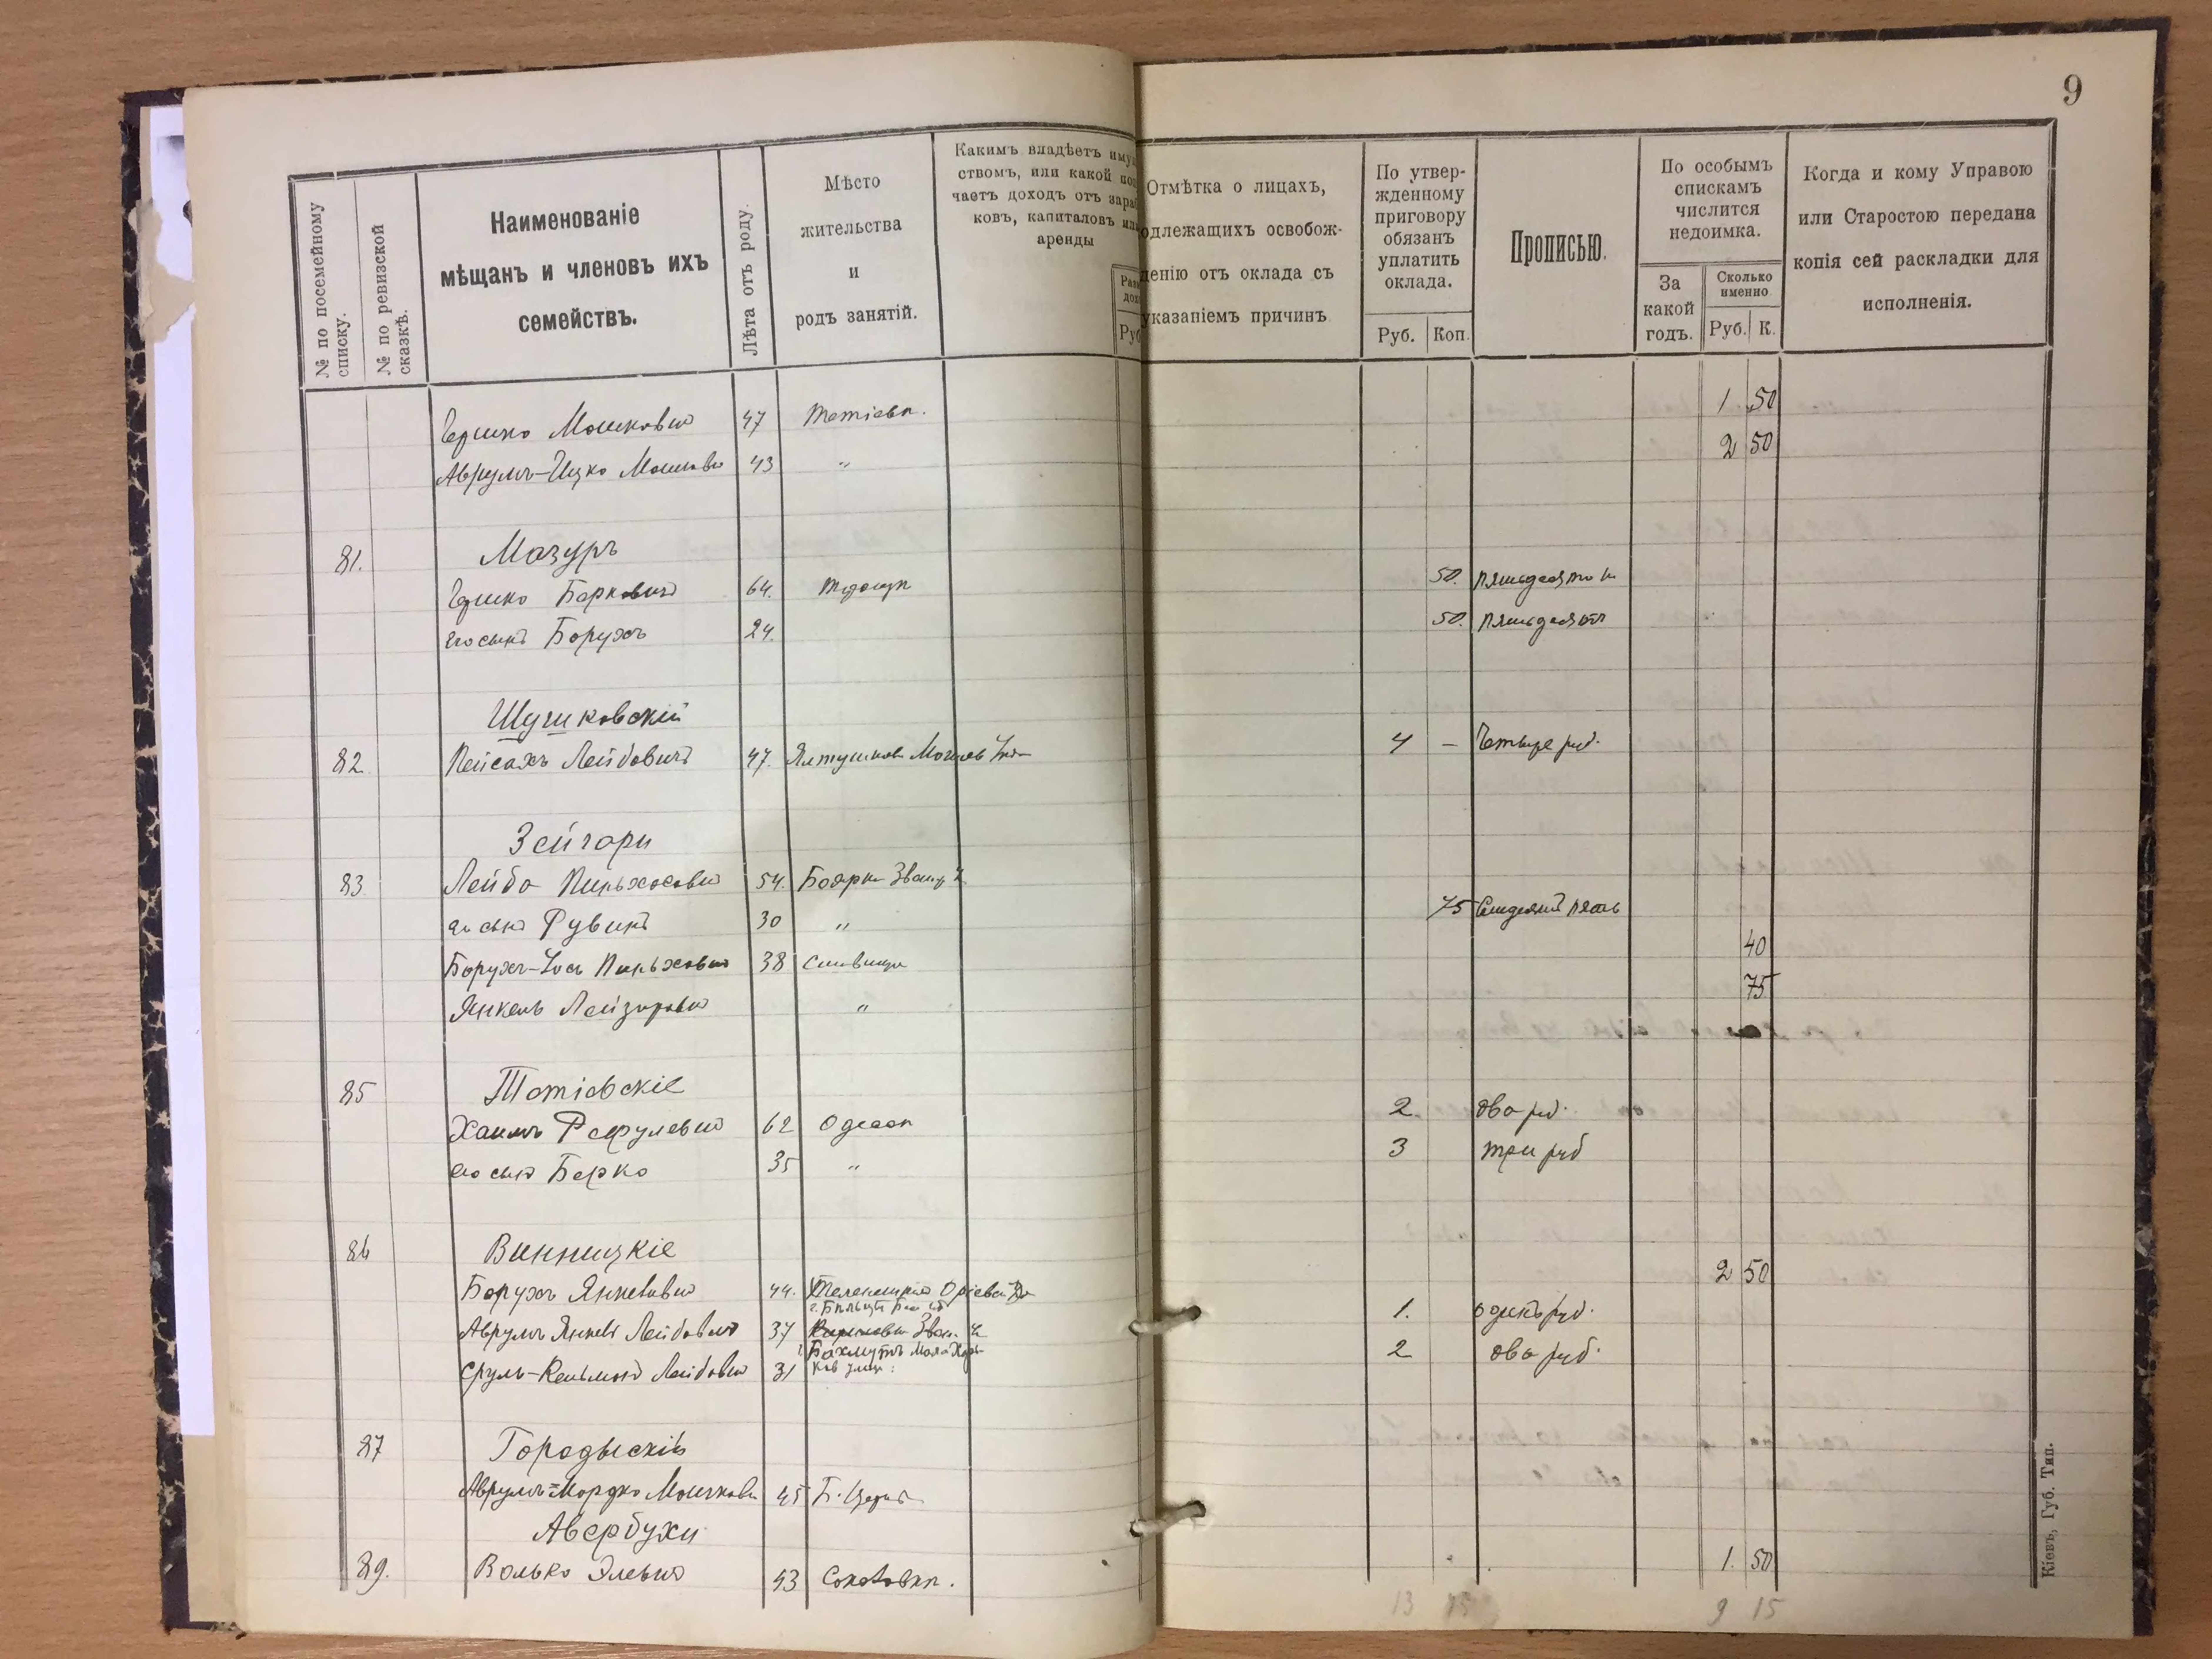 9
№ по посемейному списку.
№ по ревизской сказкѣ.
Наименованіе
мѣщанъ и членовъ ихъ
семействъ.
Лѣта отъ роду.
Мѣсто
жительства
и
родъ занятій.
Какимъ владѣетъ иму
ствомъ, или какой пол
чаетъ доходъ отъ зараб
ковъ, капиталовъ или
аренды
Руб
Отмѣтка о лицахъ,
одлежащихъ освобож-
денію отъ оклада съ
указаніемъ причинъ
По утвер-
жденному
приговору
обязанъ
уплатить
оклада.
Руб. Коп.
Прописью.
По особымъ
спискамъ
числится
недоимка.
За
какой
годъ.
Сколько
именно
Руб. К.
Когда и кому Управою
или Старостою передана
копія сей раскладки для
исполненія.
Гершко Мошковичъ 47 Тетіевъ. 1 50
Аврумъ-Ицко Мошкович 43 " 2 50
81. Мазуръ
Гершко Берковичъ 64. 50. пятьдесятъ к
его сынъ Борухъ 24. 50. пятьдесятъ
Шушковскій
82 Пейсахъ Лейбовичъ 47. Ялтушковъ Могилев 4 — Четыре руб.
Зейгери
83 Лейба Пиньхасович 54. Боярка Звениг У.
его сынъ Рувинъ 30 " 75 Семдесятъ пять
Борухъ-Іось Пиньхович 38 40
Янкель Лейзерович " 75
85 Тетіевскіе
Хаимъ Рефулович 62 Одесса 2 два руб.
его сынъ Берко 35 " 3 три руб
86 Винницкіе
Борухъ Янкелевич 44. 2 50
Аврумъ Янкель Лейбович 37 1. одинъ руб.
г. Бахмутъ
Сруль-Кельманъ Лейбович 31 2 два руб.
87 Городыскій
Аврумъ-Мордко Мошкович 45 Б. Церковь
Авербухи
89. Волько Элевич 43 Соколовка. 1. 50
13 75 9 15
Кіевъ, Губ. Тип.